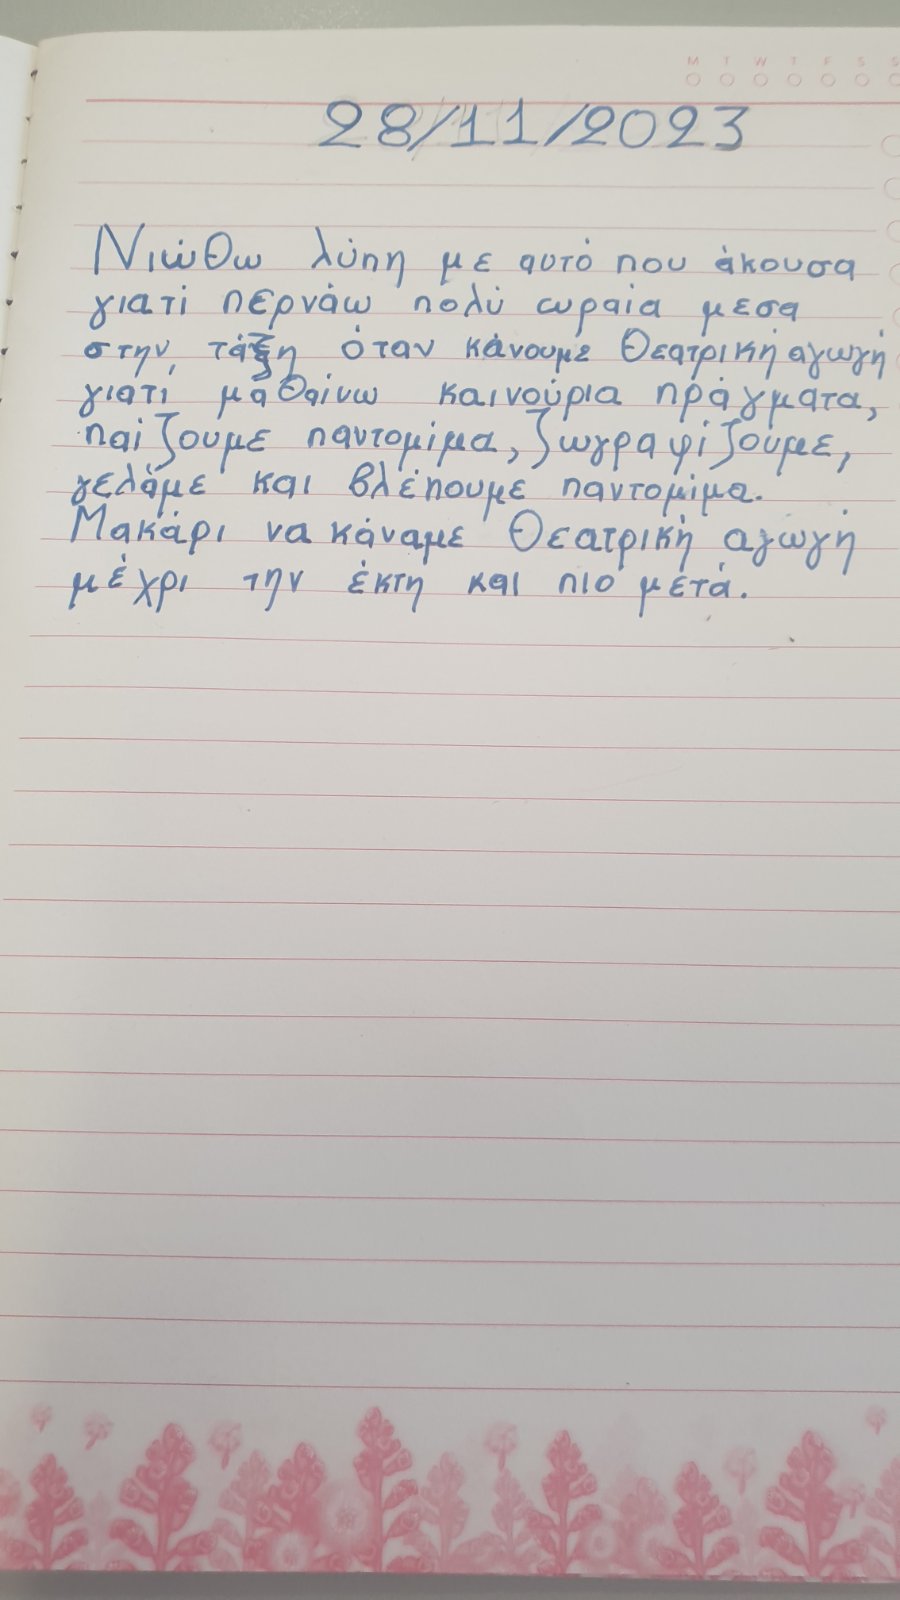 M T W T F S S
28/11/2023
Νιώθω λύπη με αυτό που άκουσα
γιατί περνάω πολύ ωραία μεσα
στην τάξη όταν κάνουμε Θεατρική αγωγή
γιατί μαθαίνω καινούρια πράγματα,
παίζουμε παντομίμα, ζωγραφίζουμε,
γελάμε και βλέπουμε παντομίμα.
Μακάρι να κάναμε Θεατρική αγωγή
μέχρι την έκτη και πιο μετά.